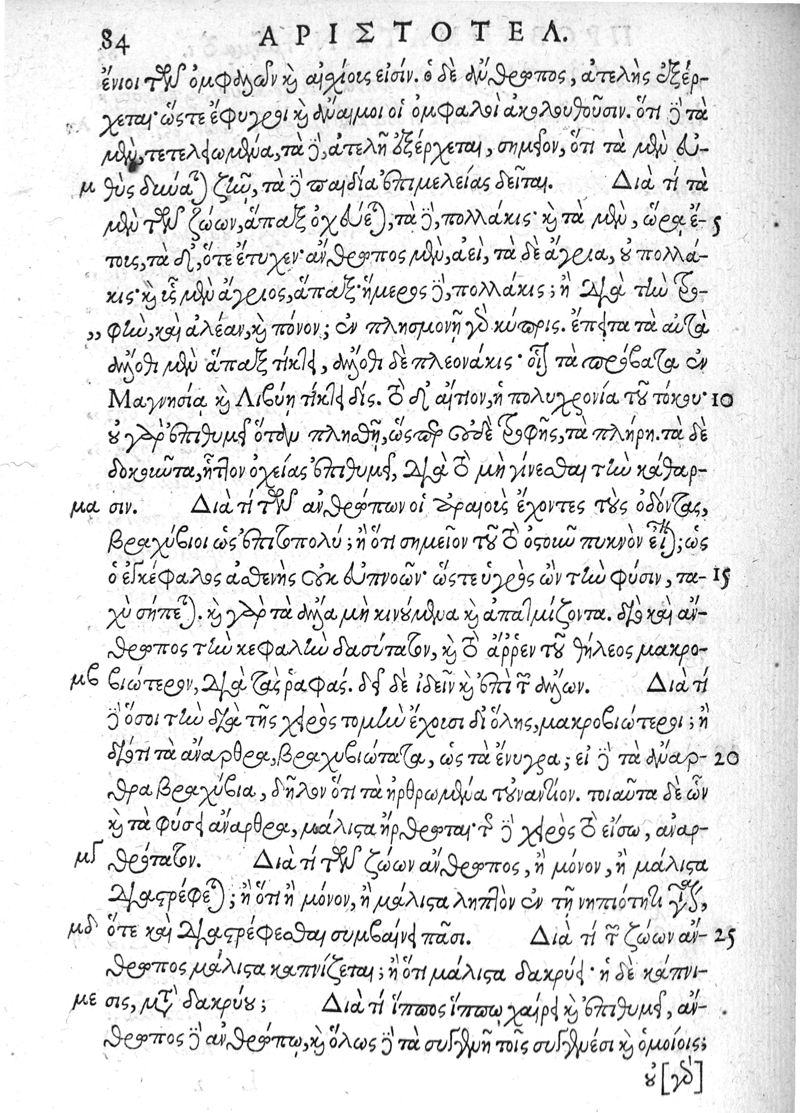 84 ΑΡΙΣΤΟΤΕΛ.
ἔνιοι τῶν ὀμφαλῶν καὶ αἰσχίοις εἰσίν. ὁ δὲ ἄνθρωπος, ἀτελὴς ἐξέρ-
χεται· ὥστε ἔφυγροι καὶ ἔναιμοι οἱ ὀμφαλοὶ ἀκολουθοῦσιν. ὅτι δὲ τὰ
μὲν, τετελεωμένα, τὰ δὲ, ἀτελῆ ἐξέρχεται, σημεῖον, ὅτι τὰ μὲν εὐ-
μ θὺς δύναται ζῆν, τὰ δὲ παιδία ἐπιμελείας δεῖται. Διὰ τί τὰ
μὲν τῶν ζώων, ἅπαξ ὀχεύεται, τὰ δὲ, πολλάκις· καὶ τὰ μὲν, ὥρᾳ ἔ- 5
τοις, τὰ δ', ὅτε ἔτυχεν· ἄνθρωπος μὲν, ἀεὶ, τὰ δὲ ἄγρια, οὐ πολλά-
κις· καὶ ὗς μὲν ἄγριος, ἅπαξ· ἥμερος δὲ, πολλάκις; ἢ διὰ τὴν τρο-
,, φὴν, καὶ ἀλέαν, καὶ πόνον; ἐν πλησμονῇ γὰρ κύπρις. ἔπειτα τὰ αὐτὰ
ἄλλοθι μὲν ἅπαξ τίκτει, ἄλλοθι δὲ πλεονάκις· οἷον τὰ πρόβατα ἐν
Μαγνησίᾳ καὶ Λιβύῃ τίκτει δίς. τὸ δ' αἴτιον, ἡ πολυχρονία τοῦ τόκου· 10
οὐ γὰρ ἐπιθυμεῖ ὅταν πλησθῇ, ὥσπερ οὐδὲ τροφῆς, τὰ πλήρη. τὰ δὲ
ἧττον ὀχείας ἐπιθυμεῖ, διὰ τὸ μὴ γίνεσθαι τὴν κάθαρ-
μα σιν. Διὰ τί τῶν ἀνθρώπων οἱ ἀραιοὺς ἔχοντες τοὺς ὀδόντας,
βραχύβιοι ὡς ἐπιτοπολύ; ἢ ὅτι σημεῖον τοῦ τὸ ὀστοῦν πυκνὸν εἶναι; ὡς
ὁ ἐγκέφαλος ἀσθενὴς οὐκ εὐπνοῶν· ὥστε ὑγρὸς ὢν τὴν φύσιν, τα- 15
χὺ σήπεται. καὶ γὰρ τὰ ἄλλα μὴ κινούμενα καὶ ἀπατμίζοντα. διὸ καὶ ἄν-
θρωπος τὴν κεφαλὴν δασύτατον, καὶ τὸ ἄῤῥεν τοῦ θήλεος μακρο-
μβ βιώτερον, διὰ τὰς ῥαφάς. δεῖ δὲ ἰδεῖν καὶ ἐπὶ τῶν ἄλλων. Διὰ τί
δὲ ὅσοι τὴν διὰ τῆς χειρὸς τομὴν ἔχουσι δι' ὅλης, μακροβιώτεροι; ἢ
διότι τὰ ἄναρθρα, βραχυβιώτατα, ὡς τὰ ἔνυγρα; εἰ δὲ τὰ ἄναρ- 20
θρα βραχύβια, δῆλον ὅτι τὰ ἠρθρωμένα τοὐναντίον. τοιαῦτα δὲ ὧν
καὶ τὰ φύσει ἄναρθρα, μάλιστα ἤρθρωται· τῆς δὲ χειρὸς τὸ εἴσω, ἀναρ-
μγ θρότατον. Διὰ τί τῶν ζώων ἄνθρωπος, ἢ μόνον, ἢ μάλιστα
διαστρέφεται; ἢ ὅτι ἢ μόνον, ἢ μάλιστα ληπτὸν ἐν τῇ νηπιότητι
μδ ὅτε καὶ διαστρέφεσθαι συμβαίνει πᾶσι. Διὰ τί τῶν ζώων ἄν- 25
θρωπος μάλιστα καπνίζεται; ἢ ὅτι μάλιστα δακρύει· ἡ δὲ κάπνι-
με σις, μετὰ δακρύου; Διὰ τί ἵππος ἵππῳ χαίρει καὶ ἐπιθυμεῖ, ἄν-
θρωπος δὲ ἀνθρώπῳ, καὶ ὅλως δὲ τὰ συγγενῆ τοῖς συγγενέσι καὶ ὁμοίοις;
οὐ [γὰρ]